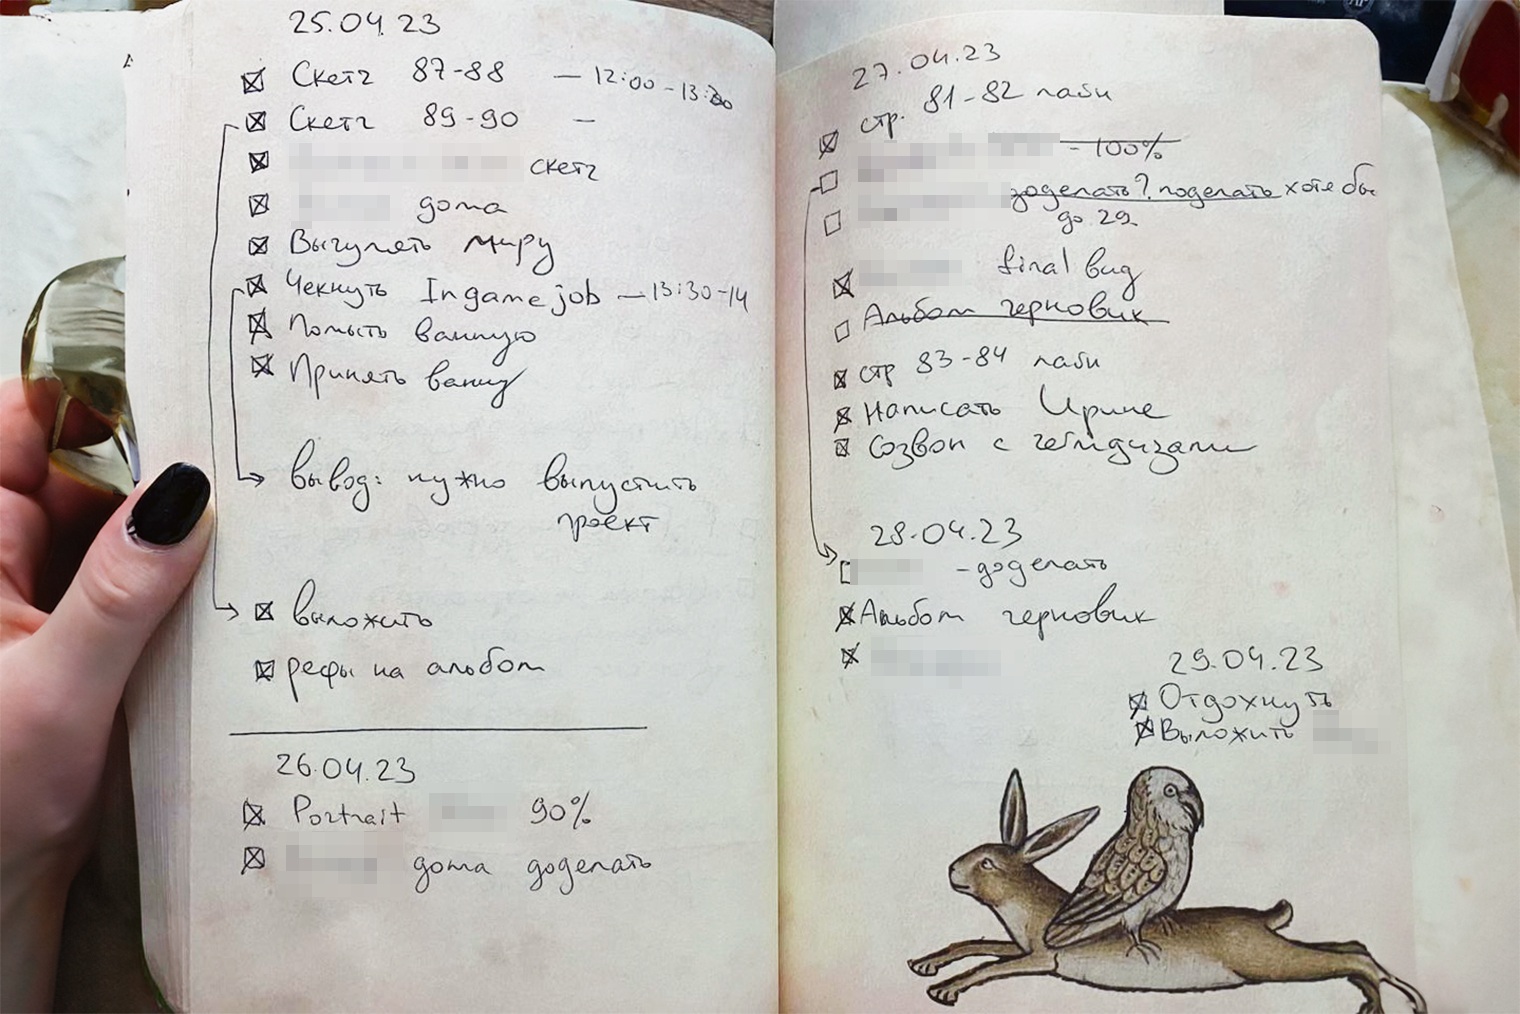 25.04.23
Скетч 87-88 — 12:00-13:30
Скетч 89-90 —
скетч
дома
Выгулять Миру
Чекнуть Ingame job — 13:30-14
Помыть ванную
Принять ванну
вывод: нужно выпустить
проект
выложить
рефы на альбом
26.04.23
Portrait 90%
дома доделать
27.04.23
стр. 81-82 лайн
- 100%
доделать? поделать хотя бы
до 29
final вид
Альбом черновик
стр 83-84 лайн
Написать Ирине
Созвон с геймдизами
28.04.23
- доделать
Альбом черновик
29.04.23
Отдохнуть
Выложить